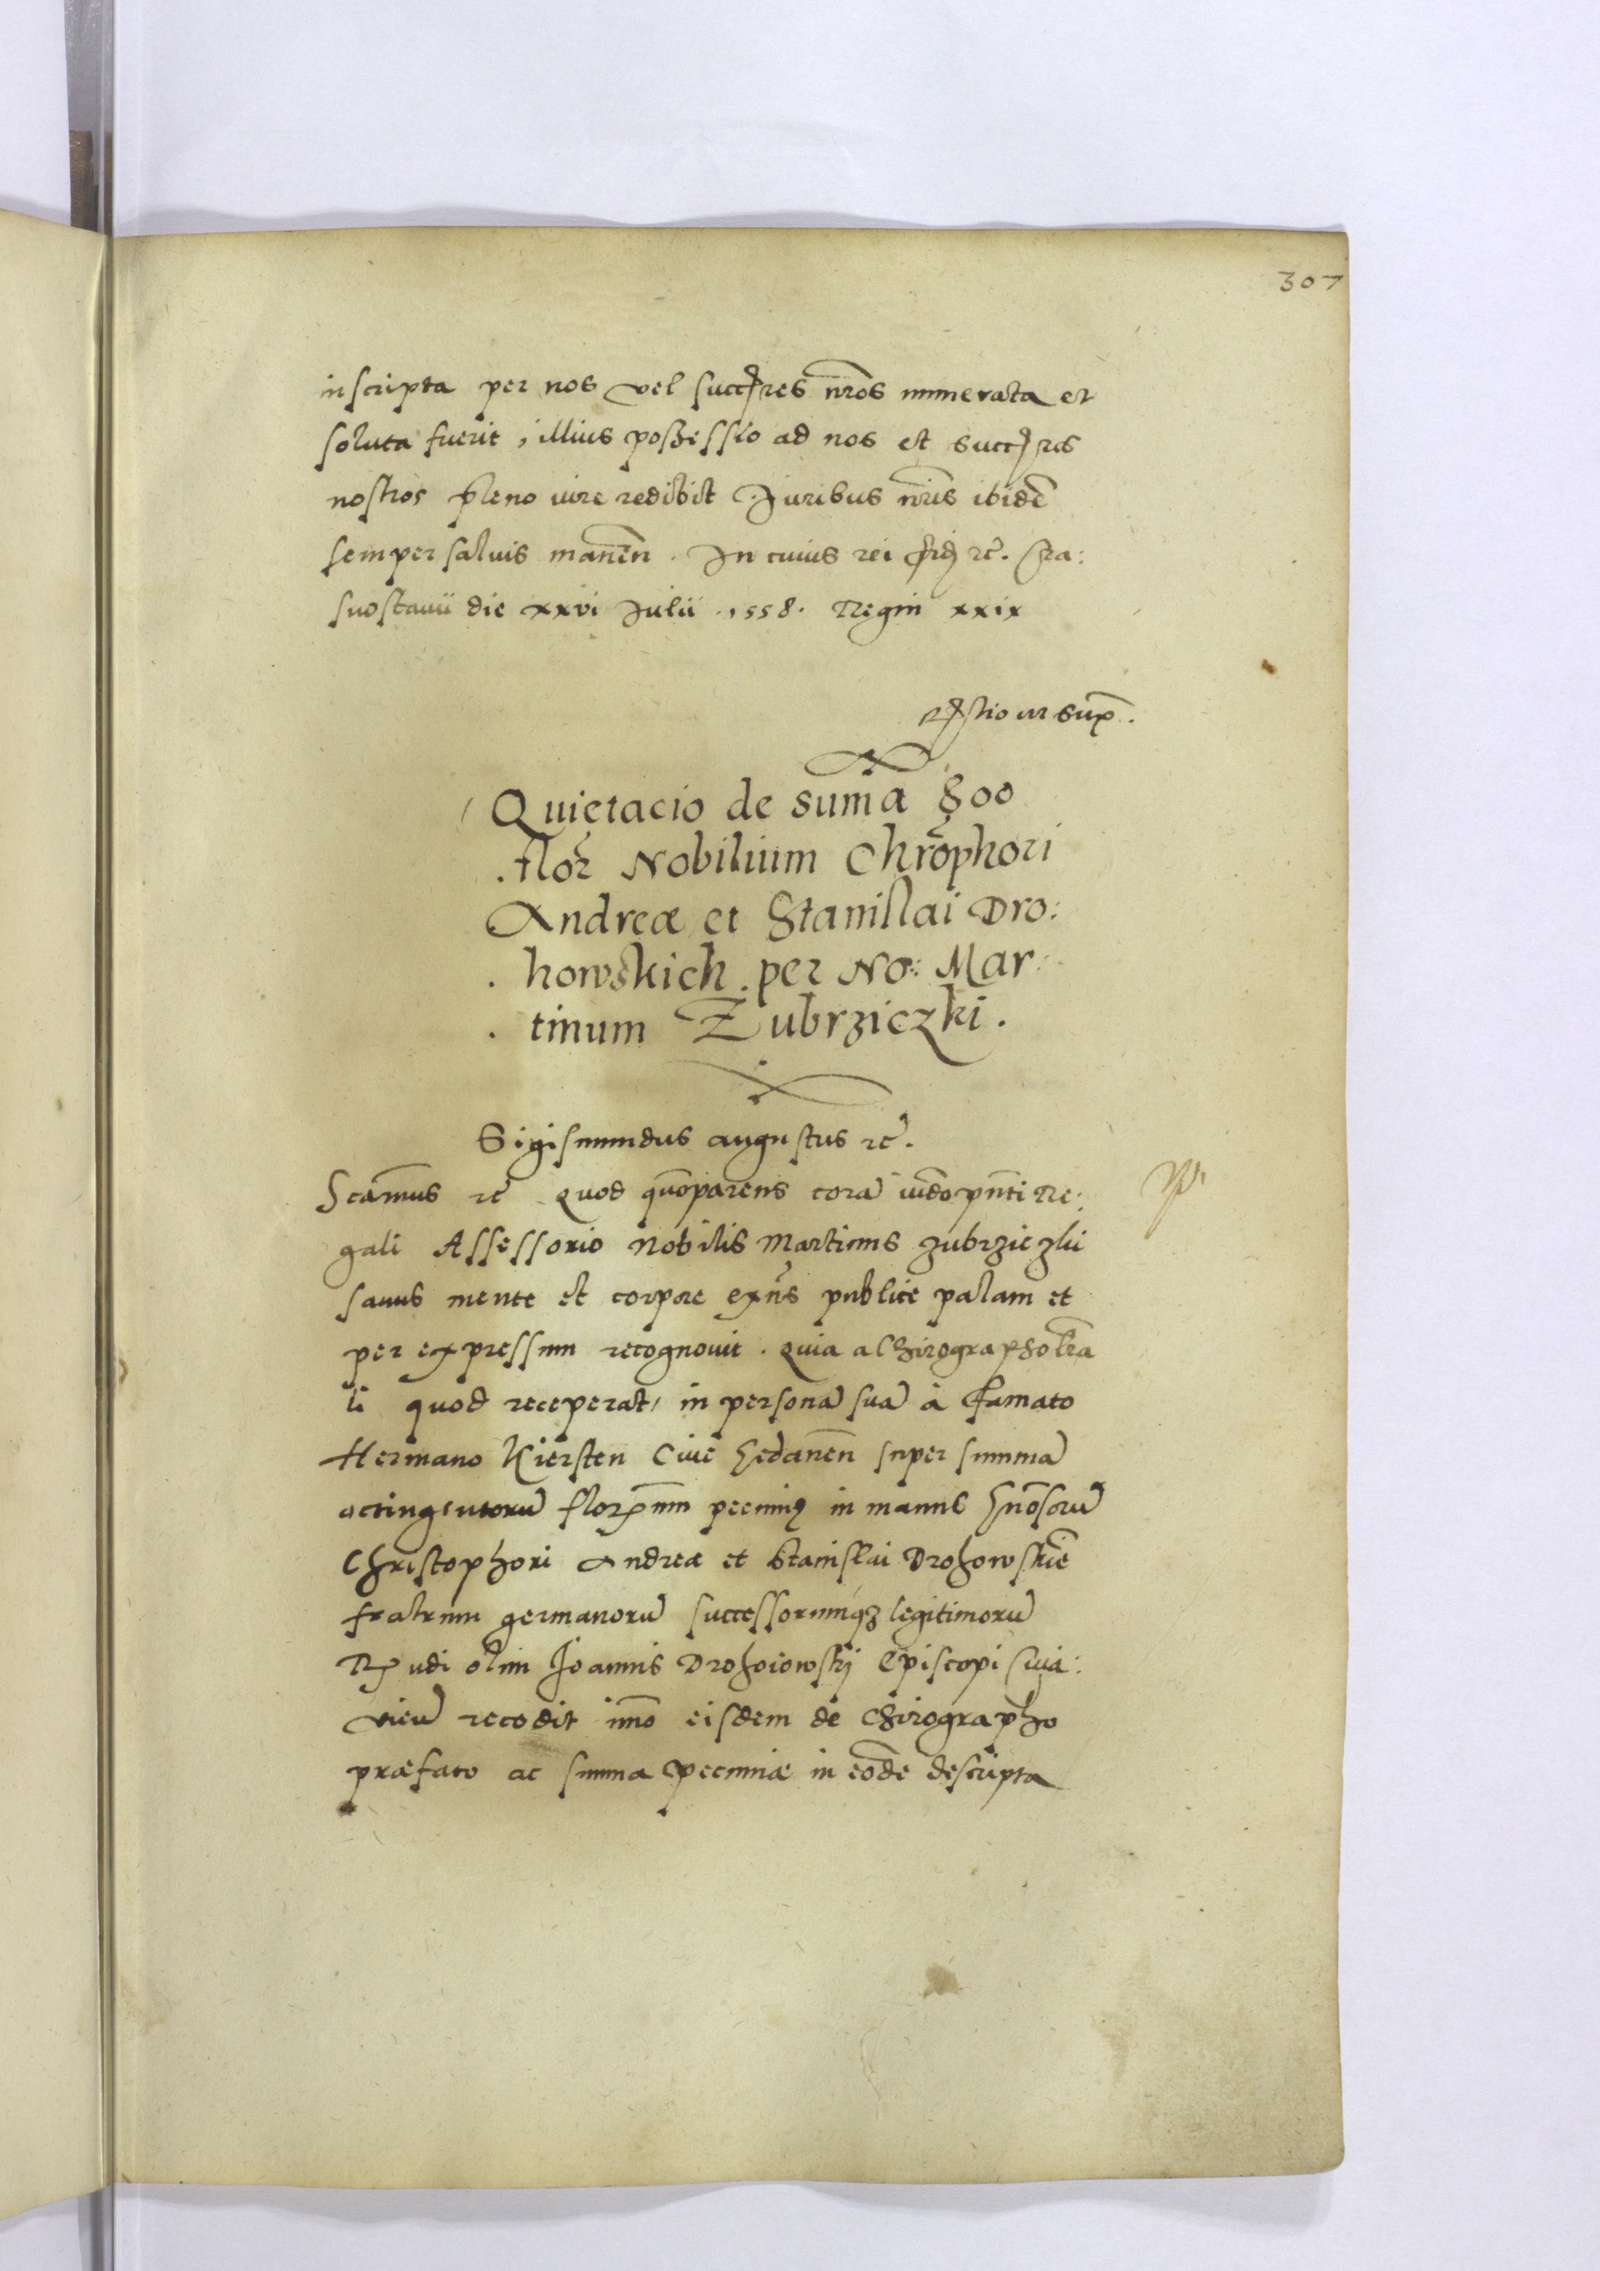 307
inscripta per nos vel succres nros numerata et
soluta fuerit, illius possessio ad nos et succres
nostros pleno iure redibit Juribus nris ibide
semper saluis manen. In cuius rei fid rc. Cra:
snostauii die xxvi Julii 1558. Regni xxix
ut supra.
Quietacio de suma 800
flor Nobilium Chrophori
Andreæ et Stanislai Dro:
howskich per No: Mar
tinum Zubrziczki.
Sigismundus augustus rc.
Scamus rc Quod comparens cora iudo pnti Re:
gali Assessorio Nobilis Martinus Zubrziczki
sanus mente et corpore exns publice palam et
per expressum recognouit. Quia a Chirographo
li quod receperat, in persona sua à famato
Hermano Kiersten Ciue Gedanen super summa
octingentoru florenum pecuniæ in manus Gnosoru
Christophori Andreæ et Stanislai Drohowskie
fratrum germanoru successorumqz legitimoru
Rndi olim Joannis Drohoiowskj Episcopi Cuia:
vien recedit imo eisdem de Chirographo
præfato ac summa pecuniæ in eode descripta